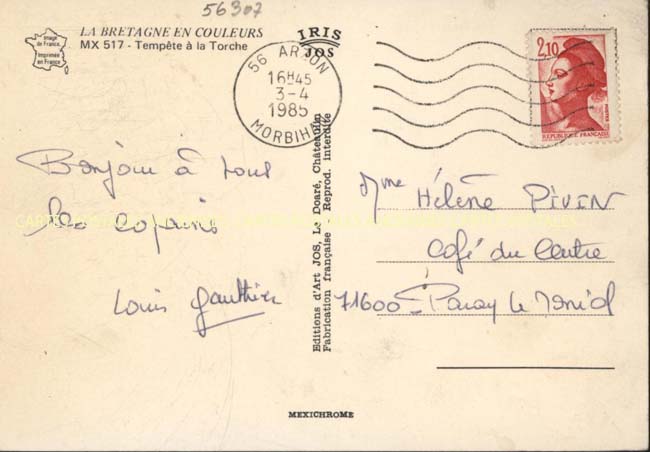 56307
LA BRETAGNE EN COULEURS
MX 517 - Tempête à la Torche
Image de France.
Imprimée en France
IRIS
JOS
56 ARZON
16H45
3-4
1985
MORBIHAN
2,10
POSTES
REPUBLIQUE FRANÇAISE
Bonjour à tous
les copains
Louis Gauthier
Editions d'Art JOS, Le Doaré, Châteaulin
Fabrication française - Reprod. Interdite
Mme Hélène PIVIN
Café du Centre
71600 - Paray le Monial
MEXICHROME